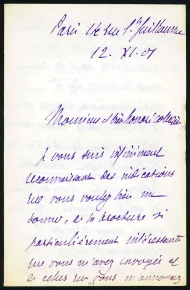 Paris 12 rue St Guillaume
12. XI. 07
Monsieur et très honoré collègue
Je vous suis infiniment
reconnaissant des indications
que vous voulez bien me
donner, de la brochure si
particulièrement intéressante
que vous m'avez envoyée et
de celles que vous m'annoncez